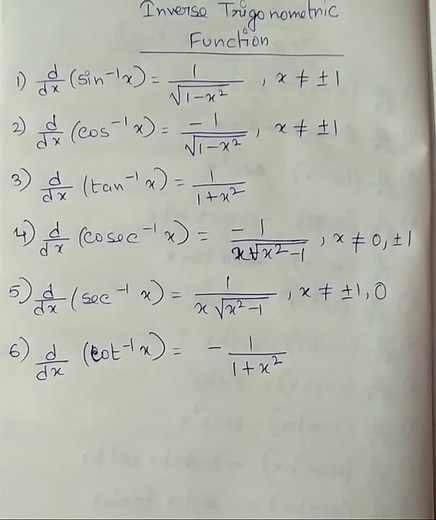 Inverse Trigonometric
Function
1) d/dx (sin⁻¹x) = 1/√(1-x²) , x ≠ ±1
2) d/dx (cos⁻¹x) = -1/√(1-x²) , x ≠ ±1
3) d/dx (tan⁻¹x) = 1/(1+x²)
4) d/dx (cosec⁻¹x) = -1/(x√(x²-1)) , x ≠ 0, ±1
5) d/dx (sec⁻¹x) = 1/(x√(x²-1)) , x ≠ ±1, 0
6) d/dx (cot⁻¹x) = - 1/(1+x²)